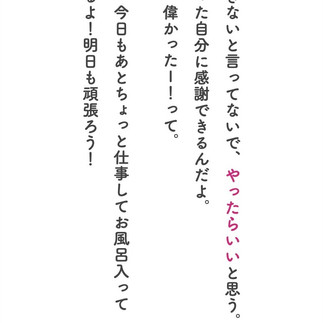 きないと言ってないで、やったらいいと思う。
た自分に感謝できるんだよ。
偉かったー！って。
今日もあとちょっと仕事してお風呂入って
るよ！明日も頑張ろう！